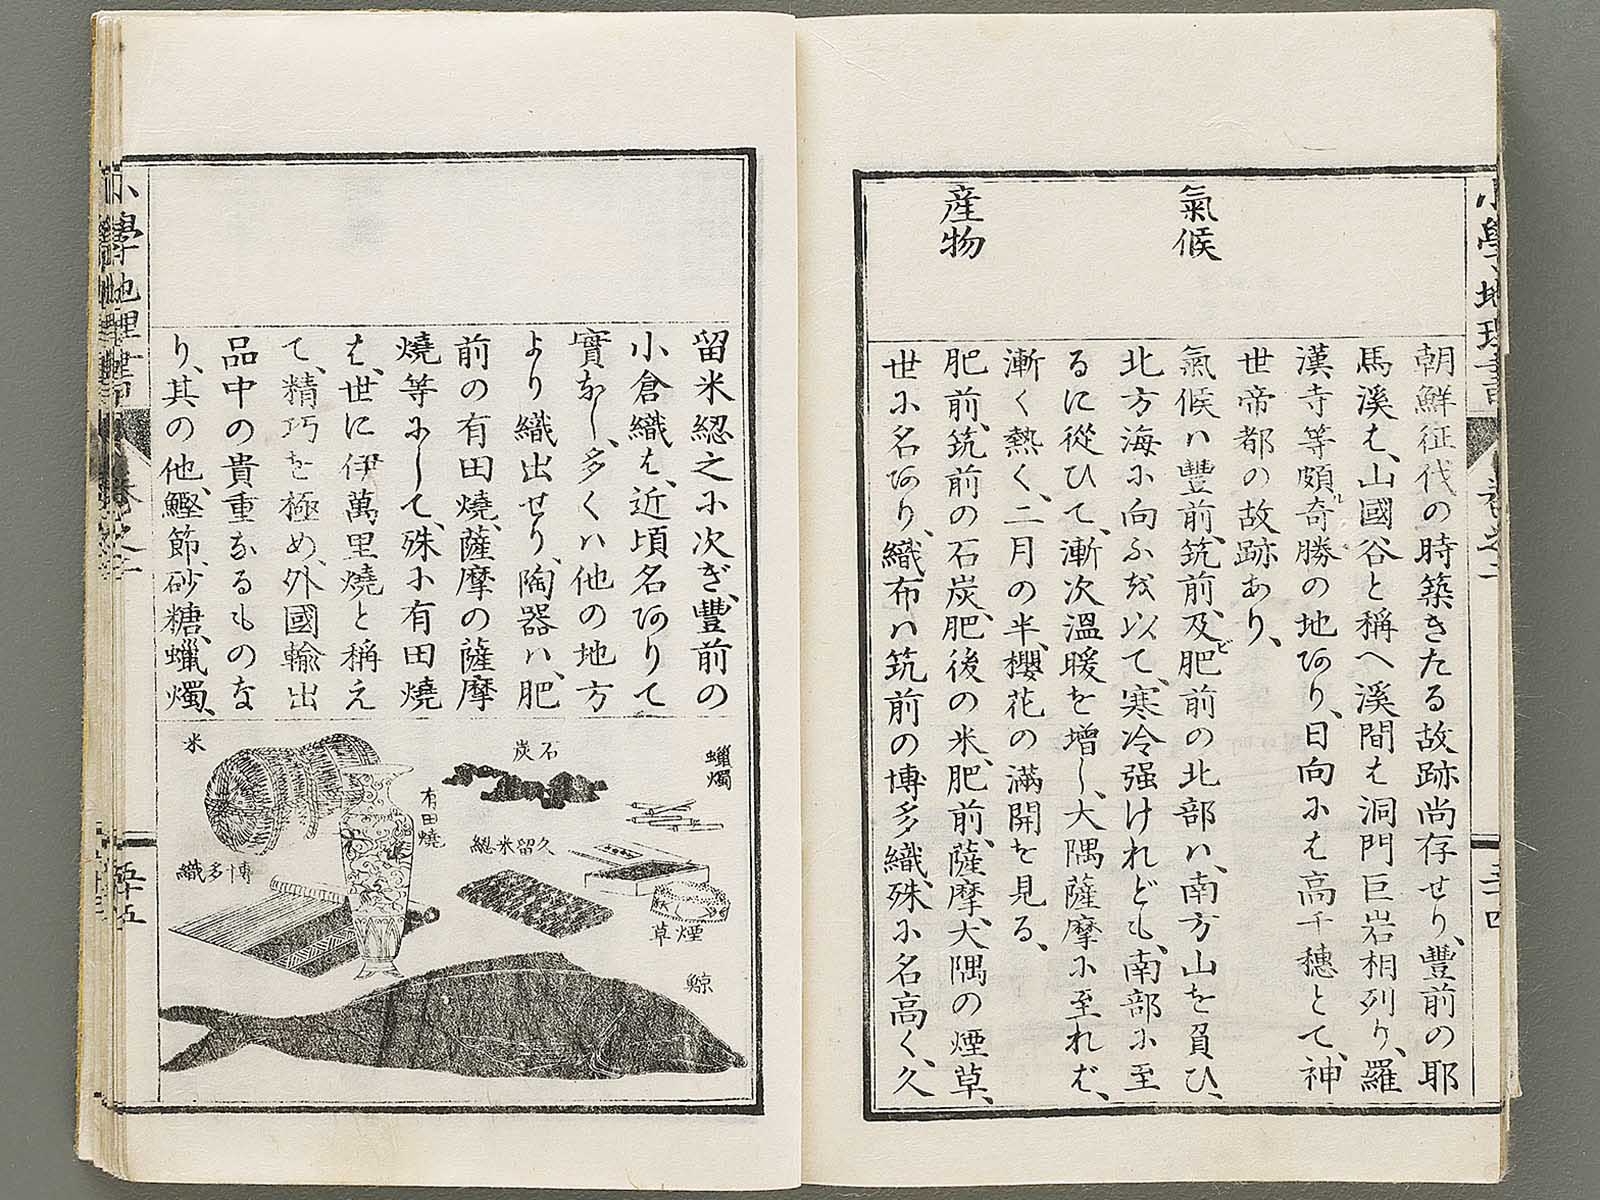 小學地理書
卷之二
五十四
氣候
産物
朝鮮征伐の時築きたる故跡尚存せり、豐前の耶
馬溪は、山國谷と稱へ溪間は洞門巨岩相列り、羅
漢寺等頗ル奇勝の地あり、日向には高千穗とて、神
世帝都の故跡あり、
氣候ハ豐前、筑前、及ビ肥前の北部ハ、南方山を負ひ、
北方海に向ふを以て、寒冷强けれども、南部に至
るに從ひて、漸次溫暖を增し、大隅薩摩に至れば、
漸く熱く、二月の半、櫻花の滿開を見る、
肥前、筑前の石炭、肥後の米、肥前、薩摩、大隅の煙草、
世に名あり、織布ハ筑前の博多織、殊に名高く、久
留米緫之に次ぎ、豐前の
小倉織は、近頃名ありて
實なし、多くハ他の地方
より織出せり、陶器ハ、肥
前の有田燒、薩摩の薩摩
燒等にして、殊に有田燒
は、世に伊萬里燒と稱え
て、精巧を極め、外國輸出
品中の貴重なるものな
り、其の他、鰹節、砂糖、蠟燭、
蠟燭
石炭
米
有田燒
久留米緫
博多織
煙草
鯨
小學地理書
卷之二
五十五